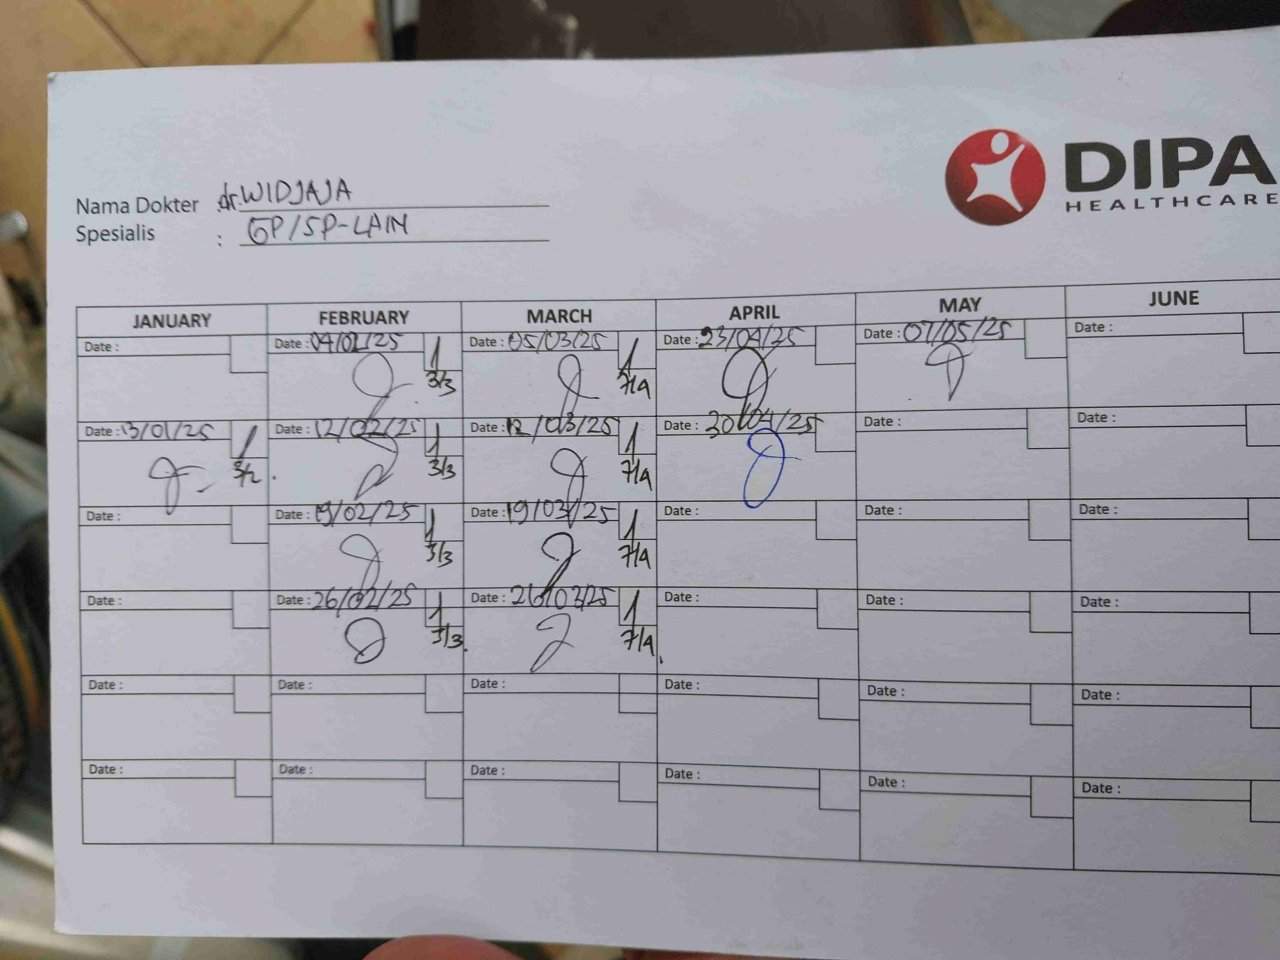 DIPA
HEALTHCARE
Nama Dokter : dr. WIDJAJA
Spesialis : GP/SP-LAIN
JANUARY FEBRUARY MARCH APRIL MAY JUNE
Date : Date : 04/02/25 Date : 05/03/25 Date : 23/04/25 Date : 07/05/25 Date :
3/3 7/4
Date : 13/01/25 Date : 12/02/25 Date : 12/03/25 Date : 30/04/25 Date : Date :
3/2 3/3 7/4
Date : Date : 19/02/25 Date : 19/03/25 Date : Date : Date :
3/3 7/4
Date : Date : 26/02/25 Date : 26/03/25 Date : Date : Date :
3/3 7/4
Date : Date : Date : Date : Date : Date :
Date : Date : Date : Date : Date : Date :